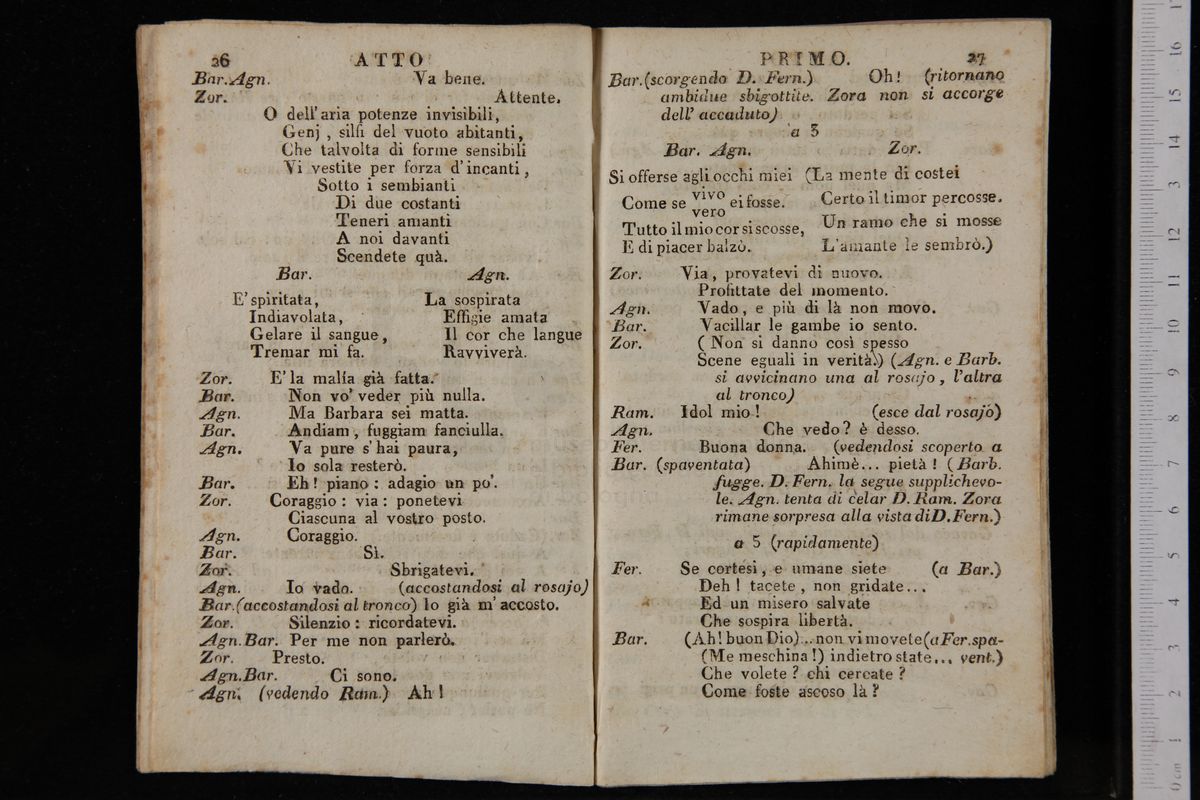 26 ATTO
Bar. Agn. Va bene.
Zor. Attente.
O dell'aria potenze invisibili,
Genj, silfi del vuoto abitanti,
Che talvolta di forme sensibili
Vi vestite per forza d'incanti,
Sotto i sembianti
Di due costanti
Teneri amanti
A noi davanti
Scendete quà.
Bar. Agn.
E' spiritata, La sospirata
Indiavolata, Effigie amata
Gelare il sangue, Il cor che langue
Tremar mi fa. Ravviverà.
Zor. E' la malìa già fatta.
Bar. Non vo' veder più nulla.
Agn. Ma Barbara sei matta.
Bar. Andiam, fuggiam fanciulla.
Agn. Va pure s' hai paura,
Io sola resterò.
Bar. Eh! piano: adagio un po'.
Zor. Coraggio: via: ponetevi
Ciascuna al vostro posto.
Agn. Coraggio.
Bar. Sì.
Zor. Sbrigatevi.
Agn. Io vado. (accostandosi al rosajo)
Bar. (accostandosi al tronco) Io già m' accosto.
Zor. Silenzio: ricordatevi.
Agn. Bar. Per me non parlerò.
Zor. Presto.
Agn. Bar. Ci sono.
Agn. (vedendo Ram.) Ah!
PRIMO. 27
Bar. (scorgendo D. Fern.) Oh! (ritornano
ambidue sbigottite. Zora non si accorge
dell' accaduto)
a 3
Bar. Agn. Zor.
Si offerse agli occhi miei (La mente di costei
Come se vivo ei fosse. Certo il timor percosse.
vero
Tutto il mio cor si scosse, Un ramo che si mosse
E di piacer balzò. L'amante le sembrò.)
Zor. Via, provatevi di nuovo.
Profittate del momento.
Agn. Vado, e più di là non movo.
Bar. Vacillar le gambe io sento.
Zor. (Non si danno così spesso
Scene eguali in verità.) (Agn. e Barb.
si avvicinano una al rosajo, l'altra
al tronco)
Ram. Idol mio! (esce dal rosajo)
Agn. Che vedo? è desso.
Fer. Buona donna. (vedendosi scoperto a
Bar. (spaventata) Ahimè... pietà! (Barb.
fugge. D. Fern. la segue supplichevo-
le. Agn. tenta di celar D. Ram. Zora
rimane sorpresa alla vista di D. Fern.)
a 5 (rapidamente)
Fer. Se cortesi, e umane siete (a Bar.)
Deh! tacete, non gridate...
Ed un misero salvate
Che sospira libertà.
Bar. (Ah! buon Dio)... non vi movete (a Fer. spa-
(Me meschina!) indietro state... vent.)
Che volete? chi cercate?
Come foste ascoso là?
0 cm 1 2 3 4 5 6 7 8 9 10 11 12 13 14 15 16 17